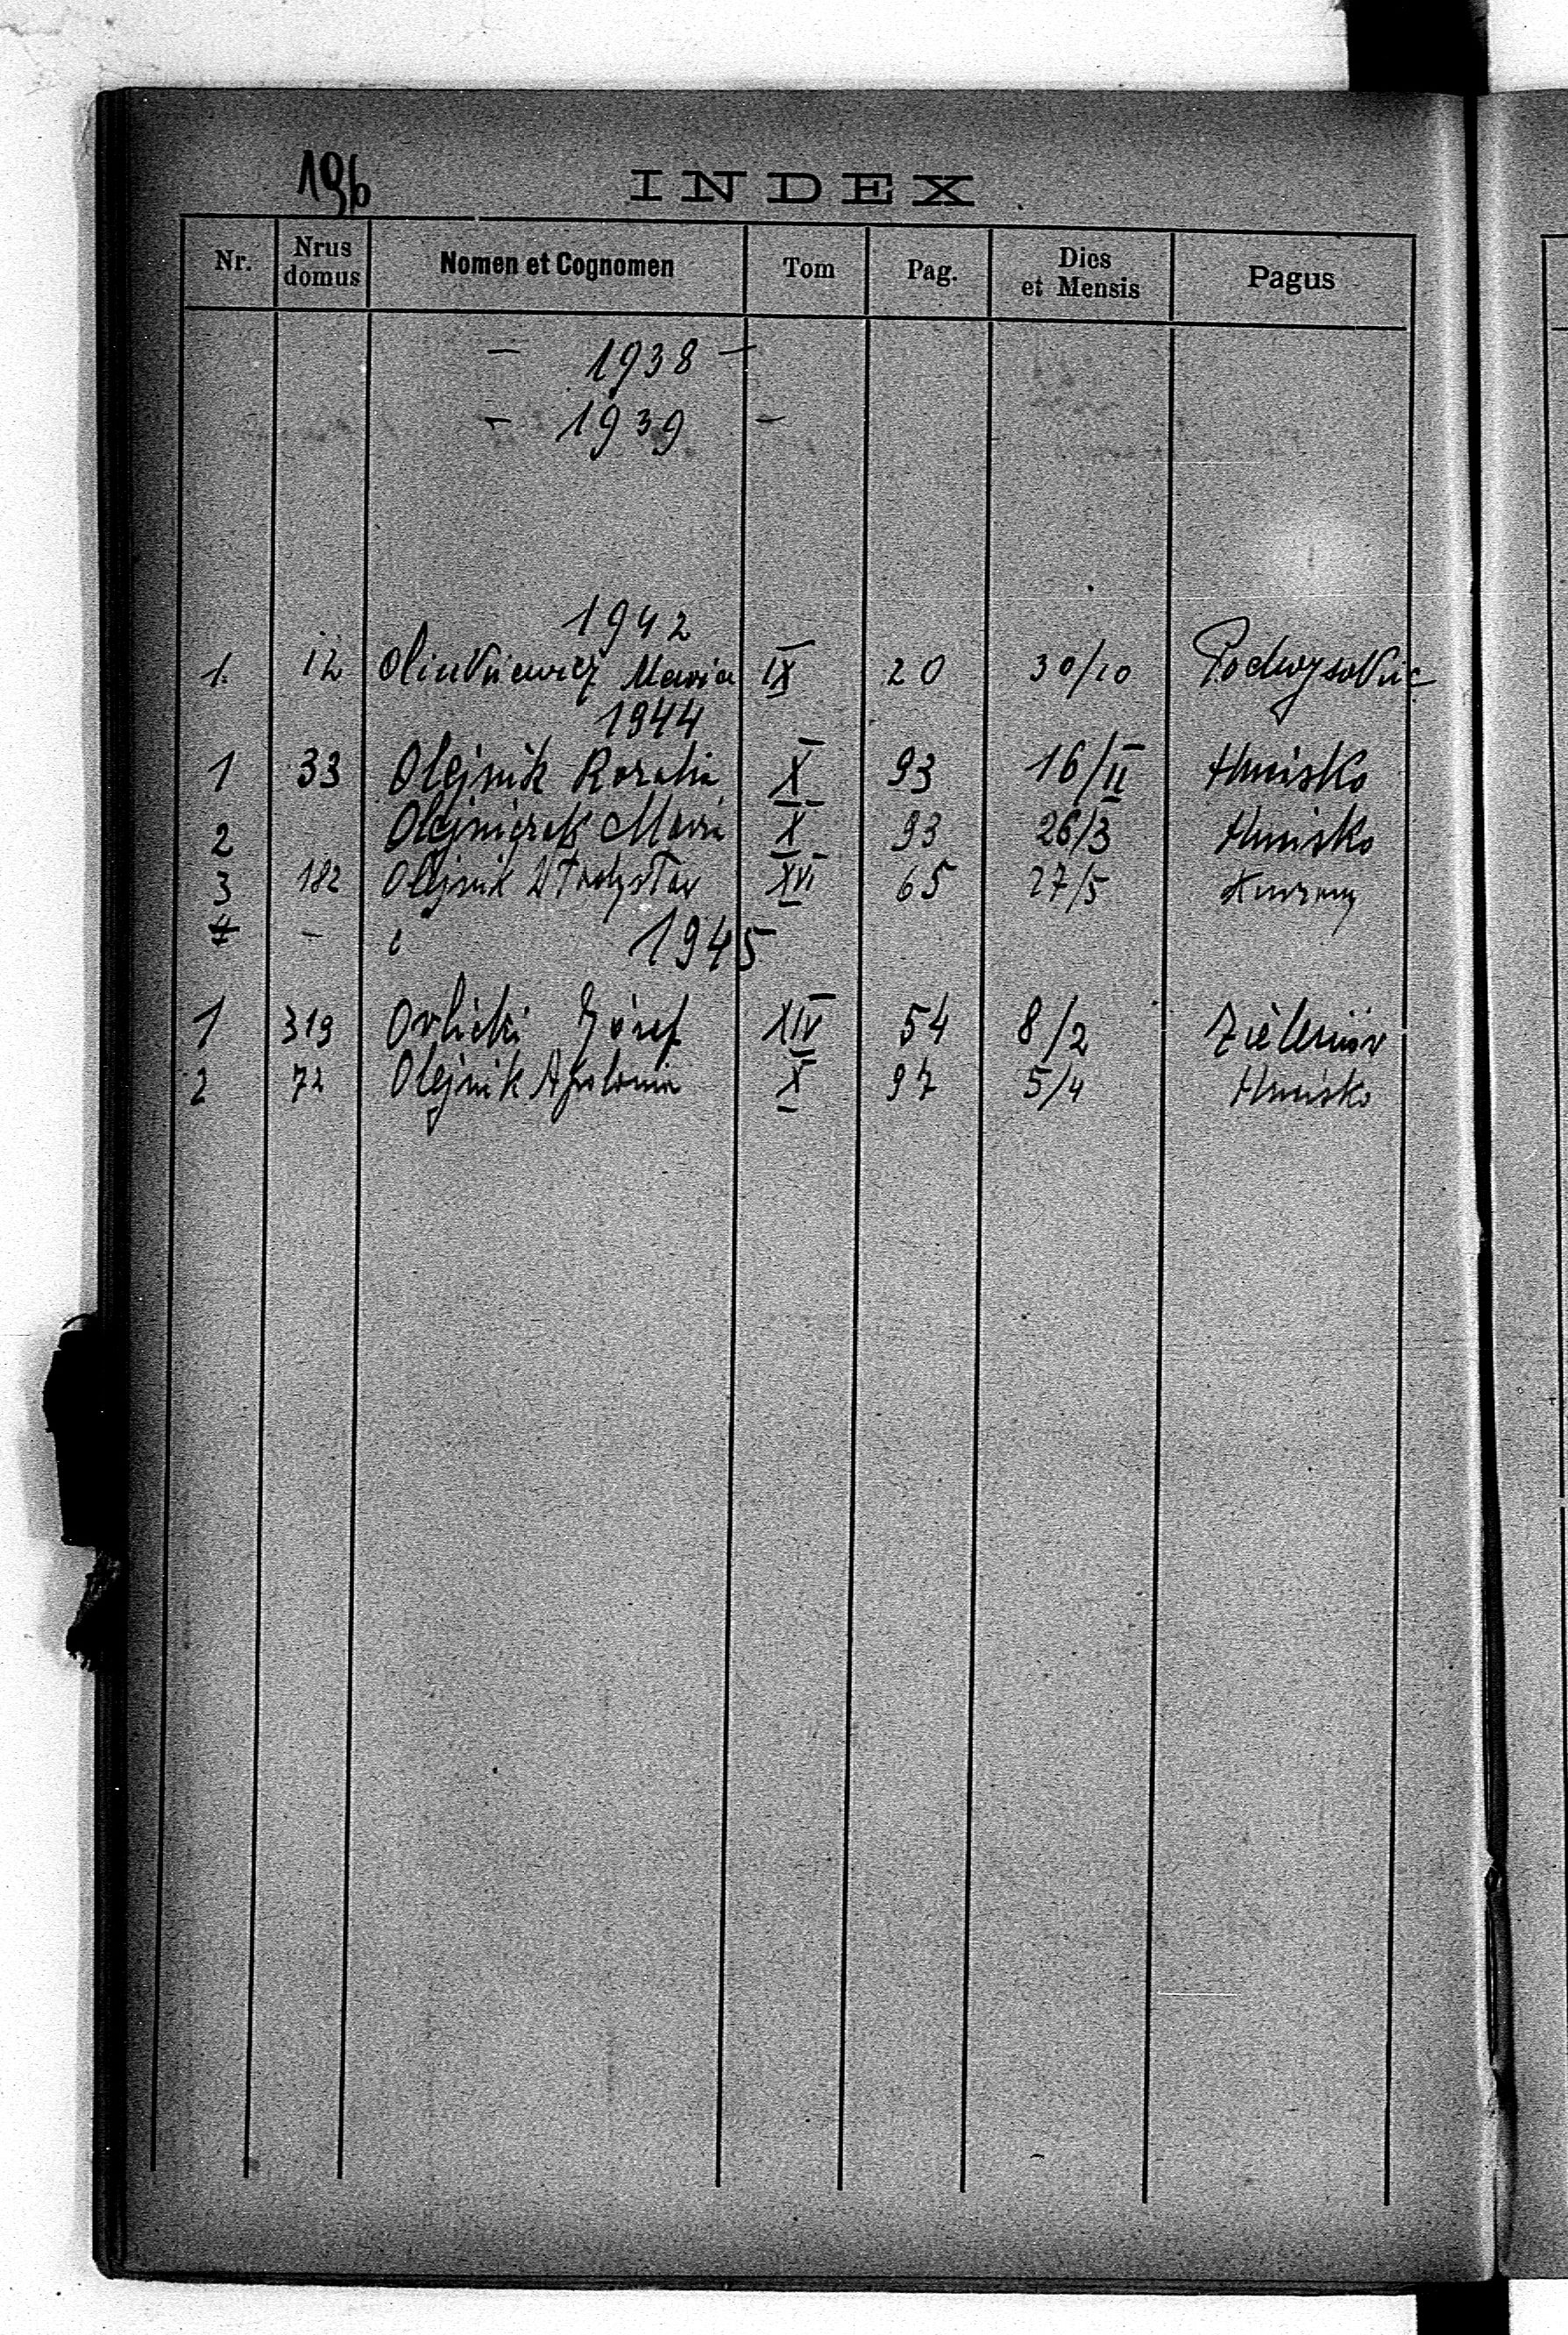 196
INDEX
Nr. Nrus domus Nomen et Cognomen Tom Pag. Dies et Mensis Pagus
– 1938 –
– 1939 –
1942
1. 12 Maria IX 20 30/10
1944
1 33 Olejnik Rozalia X 93 16/II Hnisko
2 Olejniczak Maria X 93 26/3 Hnisko
3 182 Olejnik Władysław XVI 65 27/5
4 – 1945
1 319 Orlicki Józef XIV 54 8/2
2 72 Olejnik Apolonia X 97 5/4 Hnisko